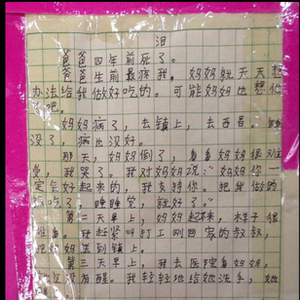 泪
爸爸四年前死了。
爸爸生前最疼我,妈妈就天天想
办法给我做好吃的。可能妈妈也想他
了吧。
妈妈病了,去镇上,去西昌,
没了,病也没好。
那天,妈妈倒了,看看妈妈很
受,我哭了。我对妈妈说:妈妈你一
定会好起来的,我支持你。把我做的
吃了,睡睡觉,就好了。
第二天早上,妈妈起不来,样子很
我赶紧叫打工刚回家的叔叔,
妈送到镇上。
第三天早上,我去医院看妈妈,
没有醒。我轻轻地给她洗手,她